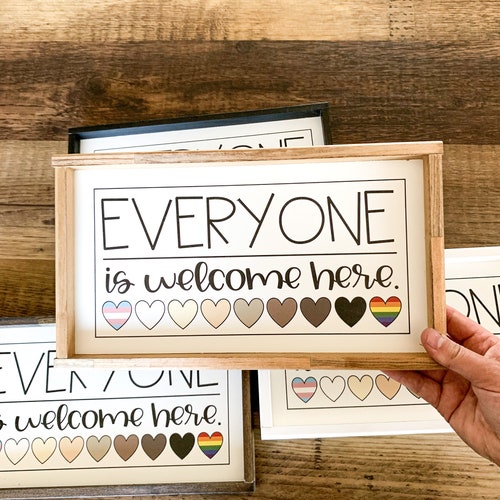 EVERYONE
EVERYONE
is welcome here.
ONE
EVERYONE
s welcome here.